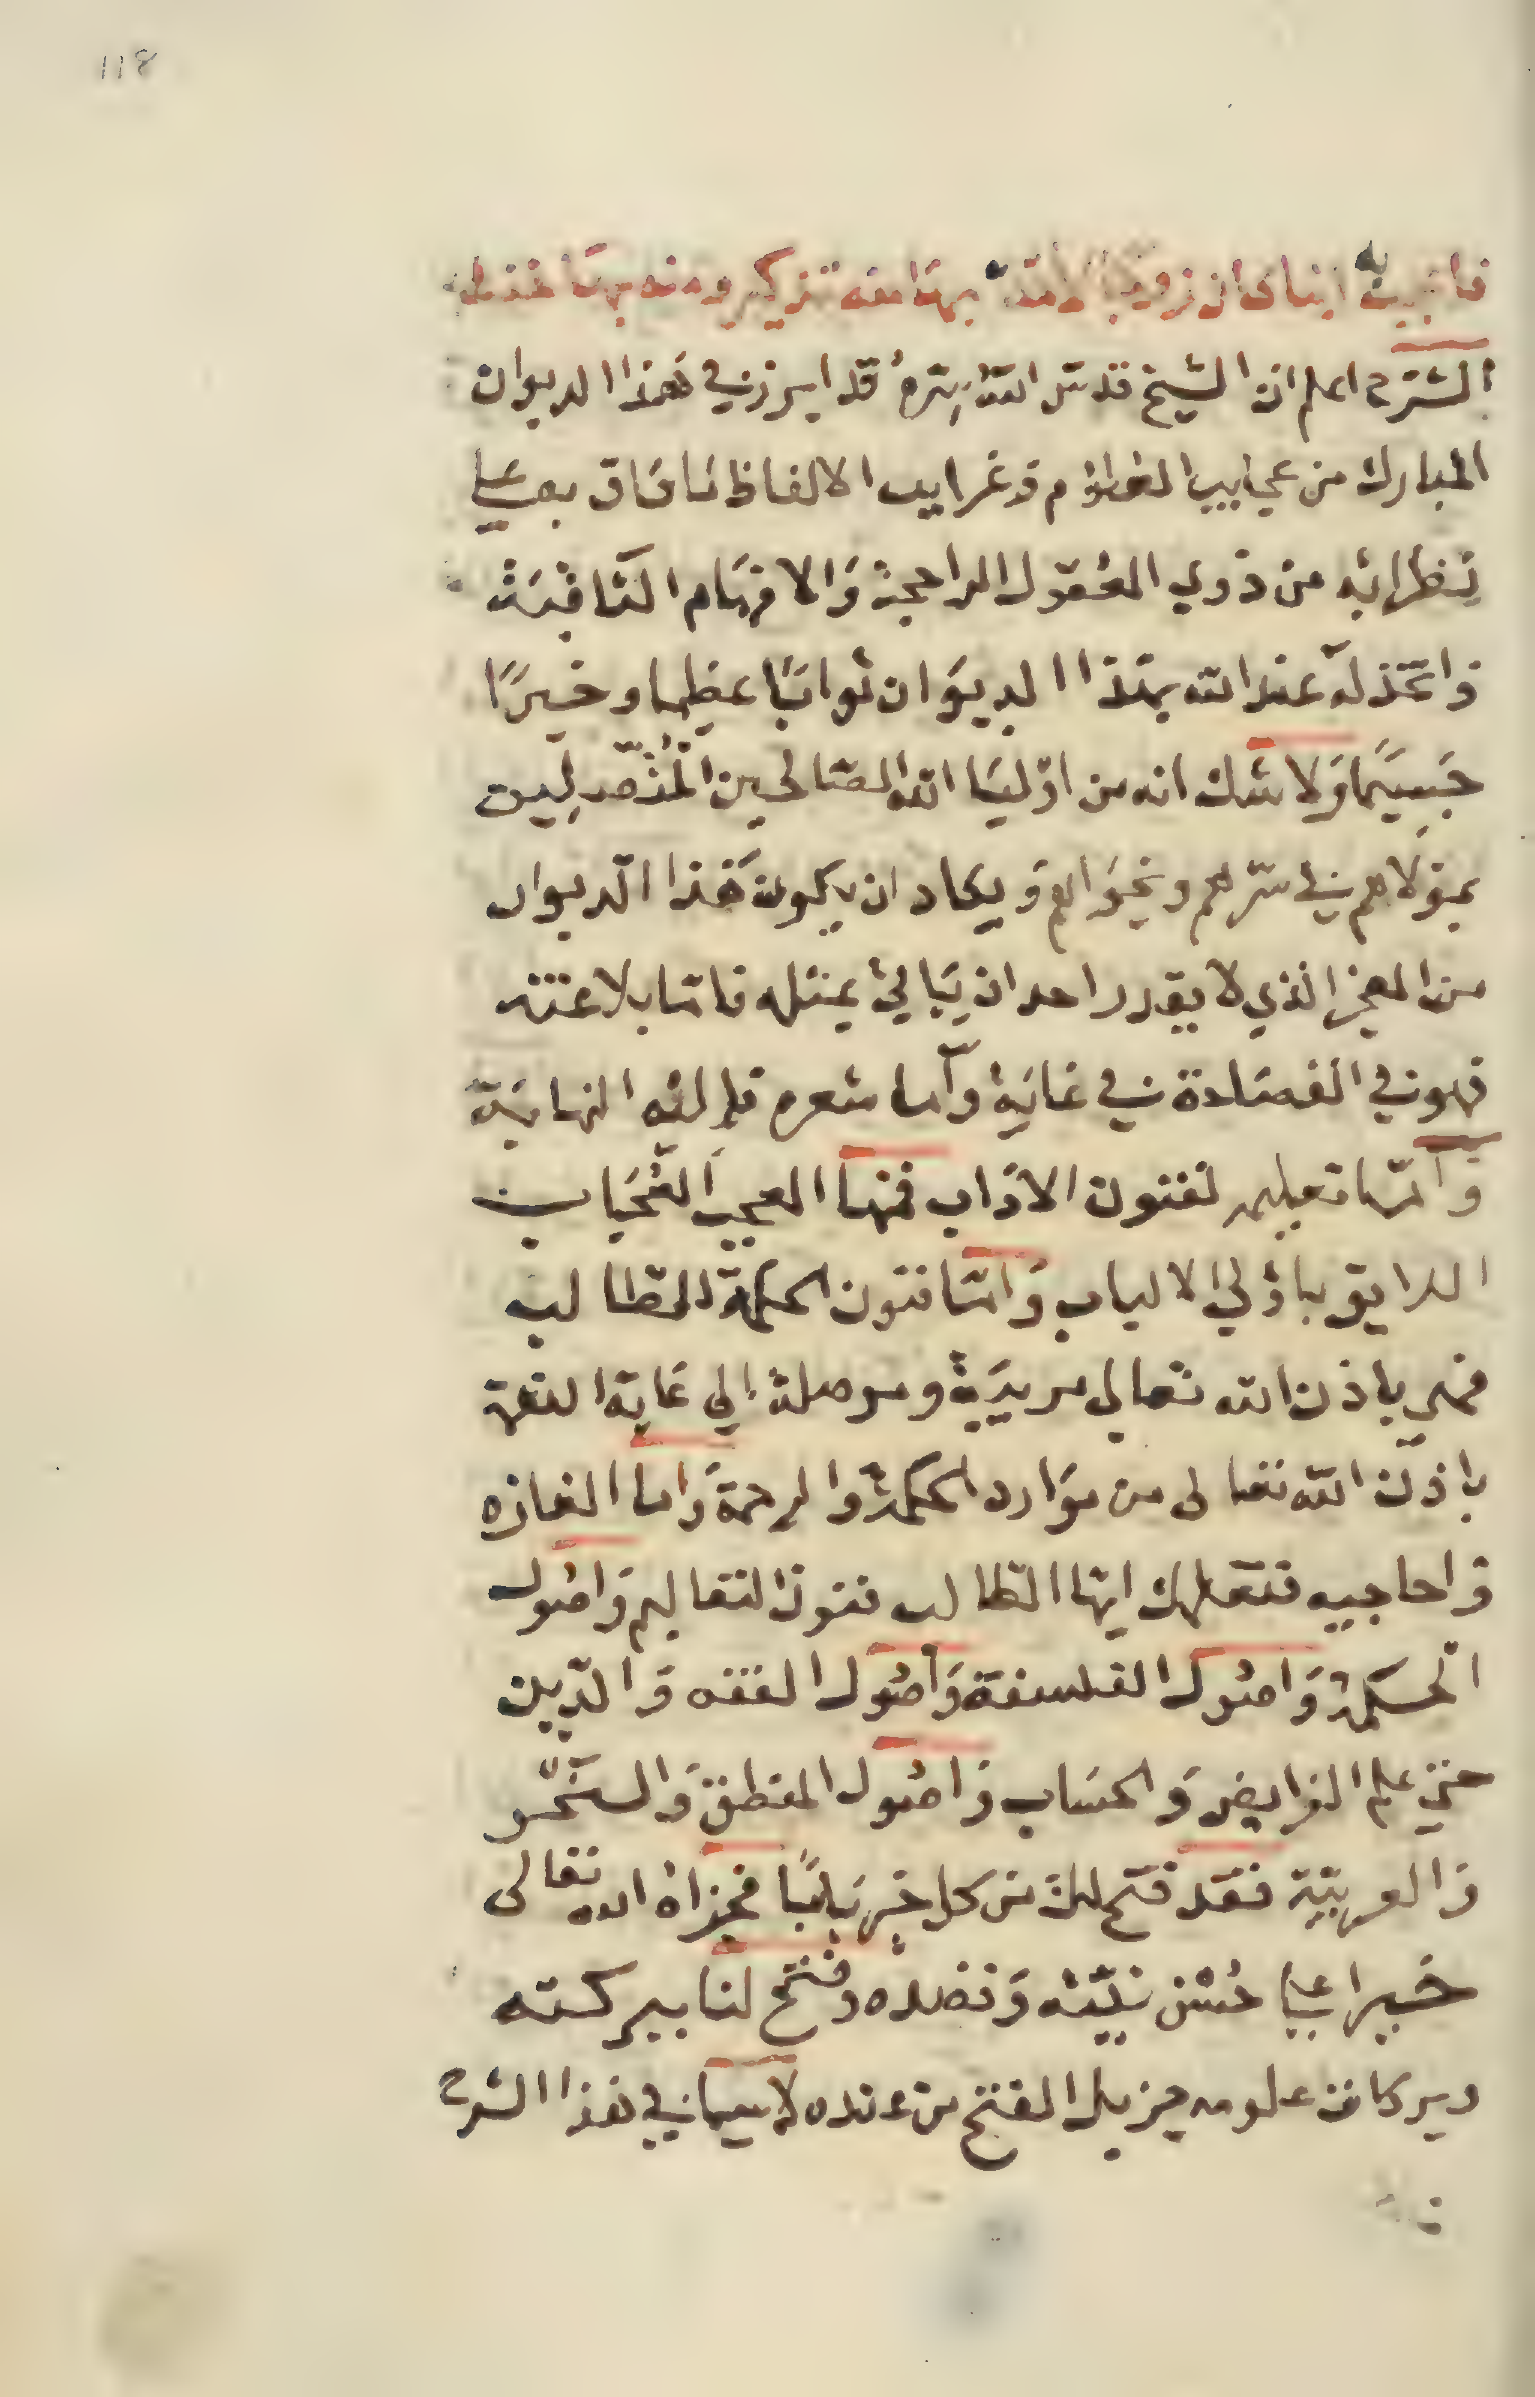 118
الشرح اعلم ان الشيخ قدس الله سره قد ابرز في هذا الديوان
المبارك من عجايب العلوم وغرايب الالفاظ ما فاق به على
نظرائه من ذوي العقول الراجحة والافهام الثاقبة
واتخذ له عند الله بهذا الديوان ثوابًا عظيما وخيرًا
جسيمًا ولا شك انه من اوليا الله الصالحين
بمولاهم في سرهم ونجواهم ويكاد ان يكون هذا الديوان
من المعجز الذي لا يقدر احد ان ياتي بمثله فاما بلاغته
فهو في الفصاحة في غاية وأما شعره فإليه النهاية
وامّا تعليمه لفنون الاداب فمنها العجب العُجاب
اللايق باولي الالباب وامّا فنون الحكمة للطالب
فهي باذن الله تعالى مربية وموصلة الي غاية النعمة
باذن الله تعالى من موارد الحكمة والرحمة واما الغازه
واحاجيه فتعلمك ايها الطالب فنون التعاليم واصول
الحكمة واصول الفلسفة واصول الفقه والدّين
حتي علم الفرايض والحساب واصول المنطق والنحو
والعربيّة فقد فتح لك من كل خير بابًا فجزاه الله تعالى
خيرا علي حُسْن نيّته وقصده وفتح لنا ببركته
وبركات علومه جزيل الفتح من عنده لا سيما في هذا الشرح